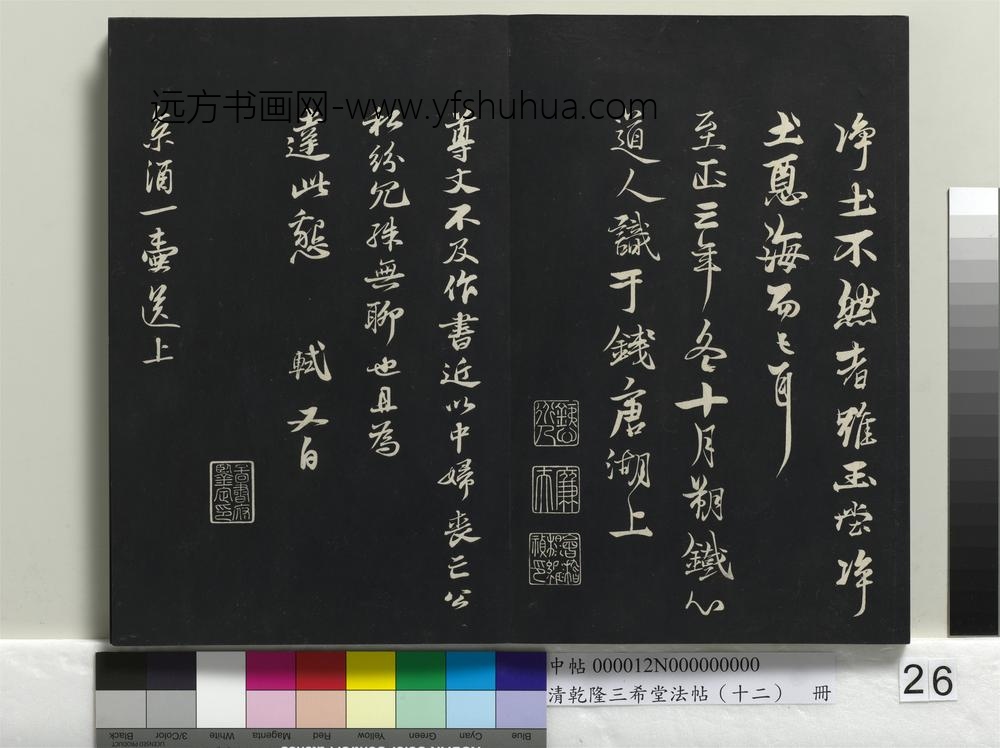 净土不然者雖玉
净
土惡海而已耳
至正三年冬十月朔鐵心
道人識于錢唐湖上
尊丈不及作書近以中婦喪亡公
私紛冗殊無聊也且為
達此懇 軾又白
酒一壷送上
远方书画网-www.yfshuhua.com
中帖 000012N000000000
清乾隆三希堂法帖（十二） 冊
26
Blue
Cyan
Green
Yellow
Red
Magenta
White
3/Color
Black